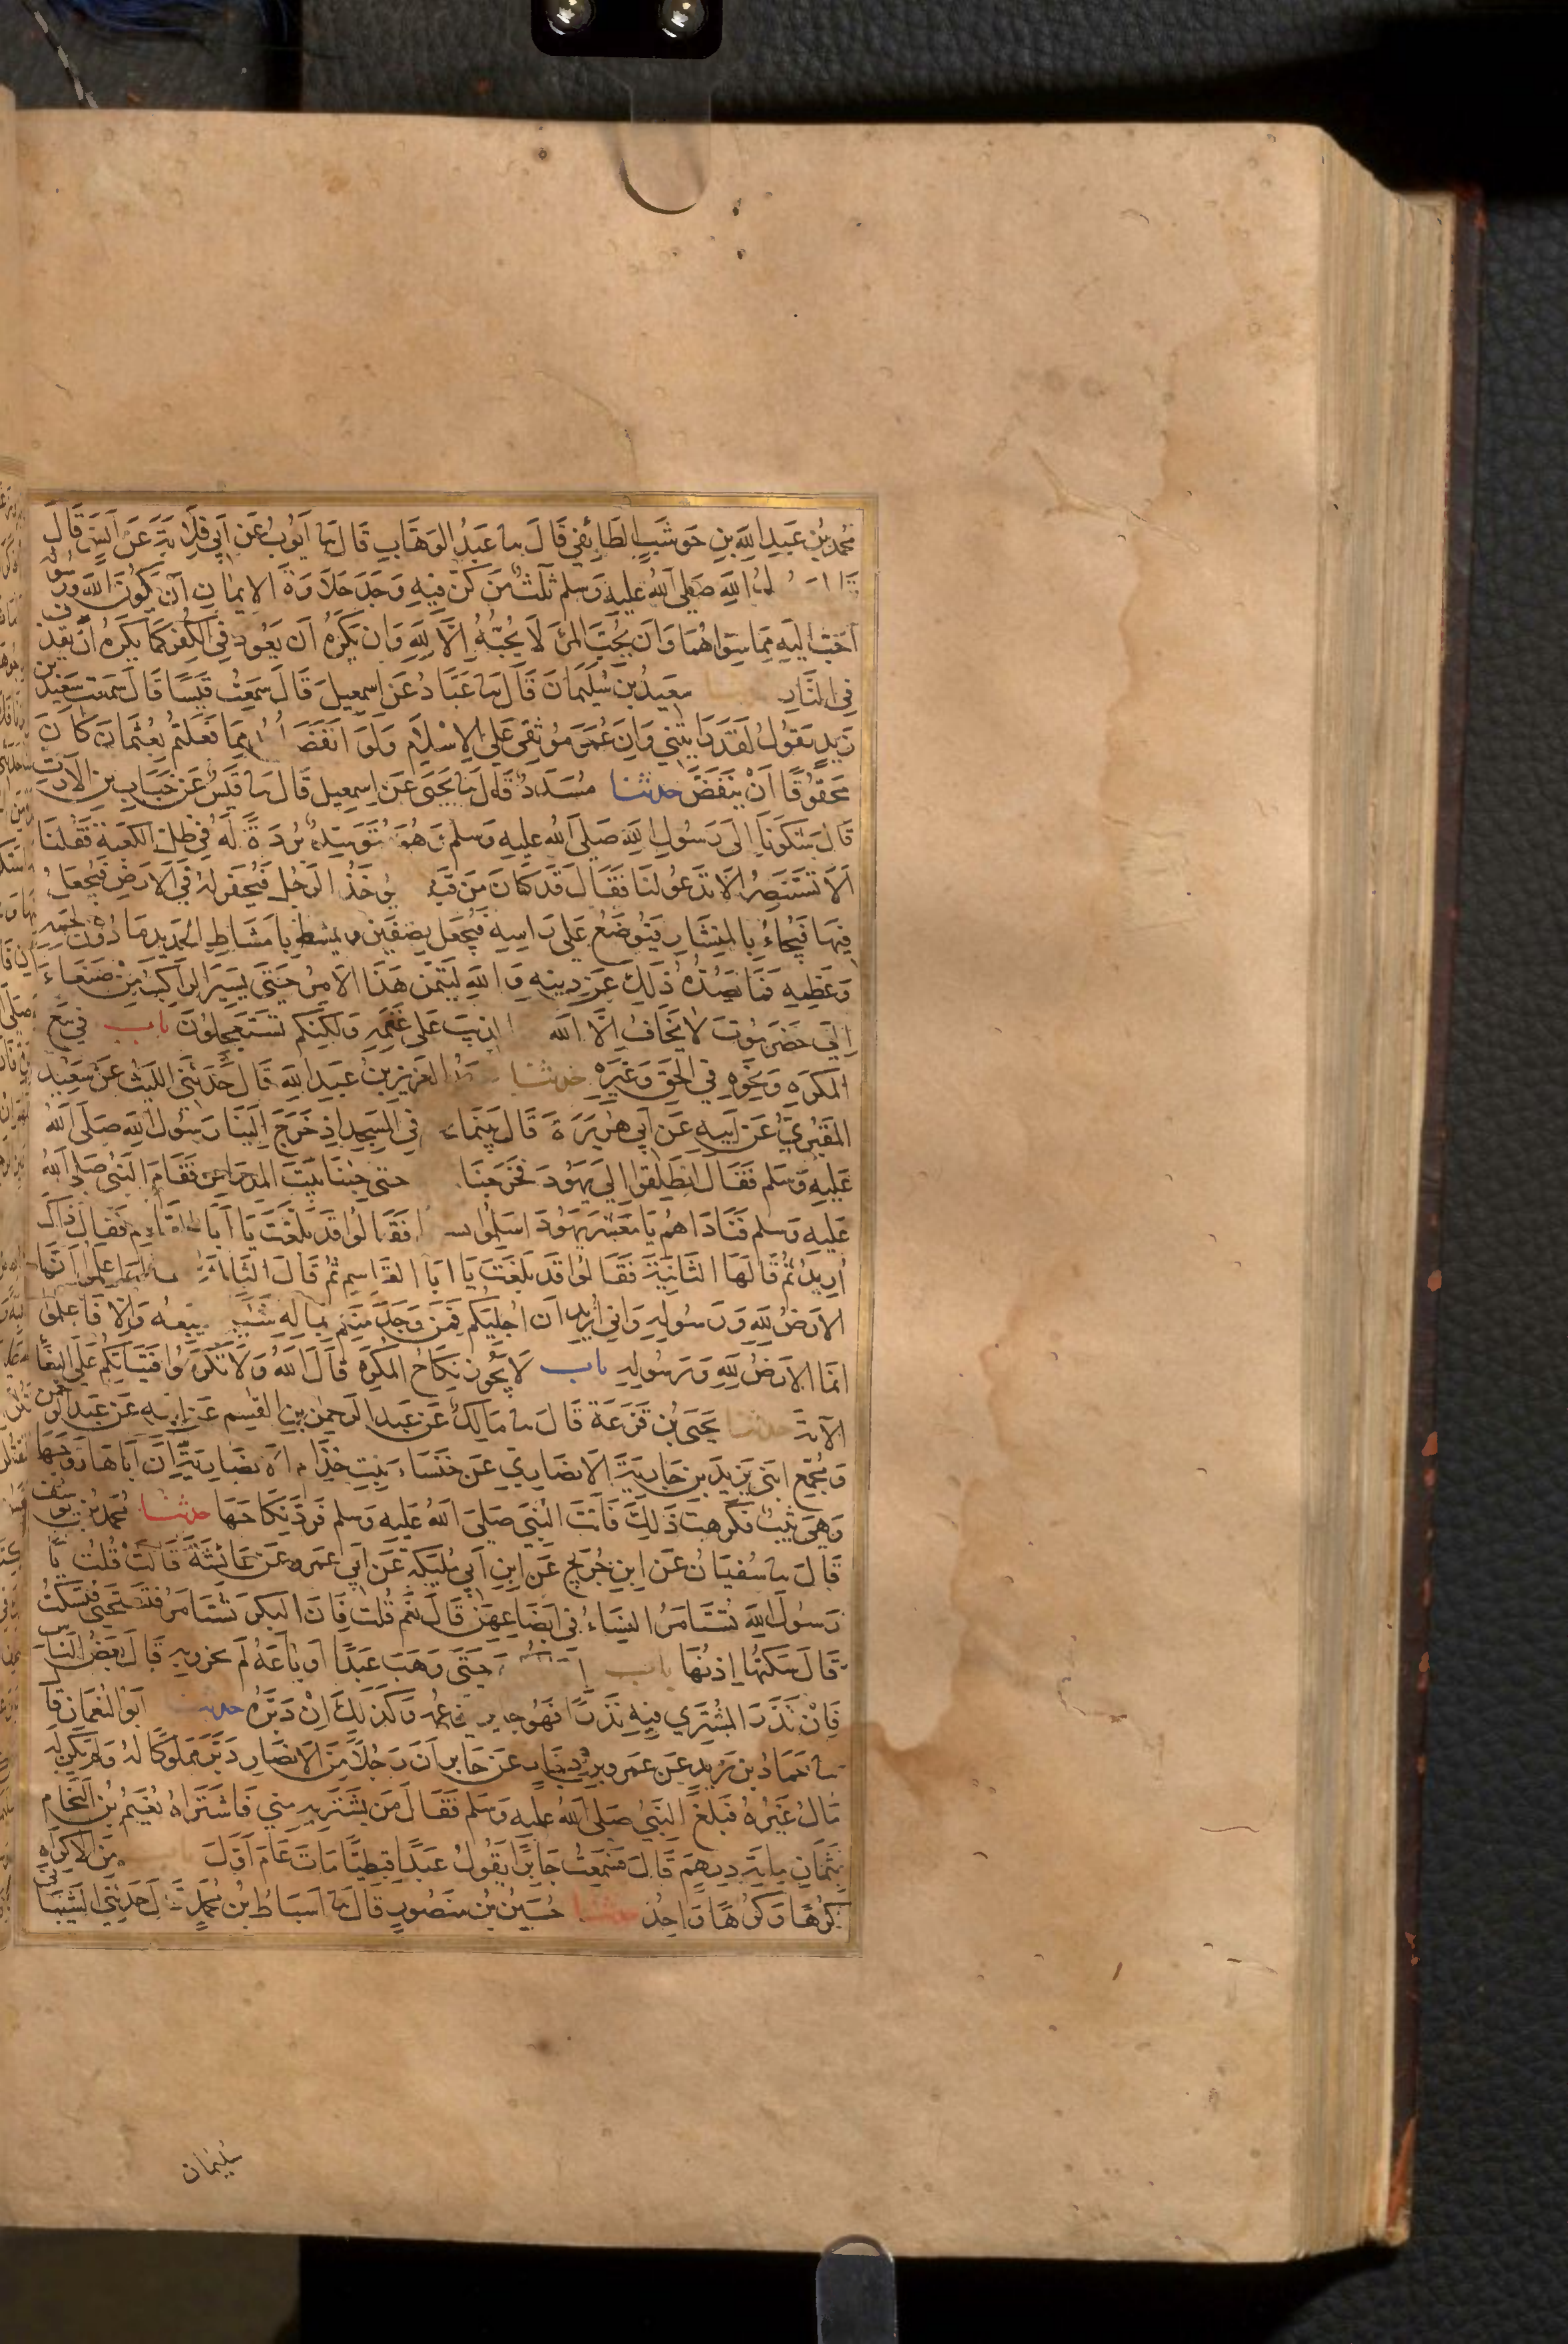 مُحمد بْن عَبدِ اللهِ بنِ حَوشَبٍ الطَائِفي قَالَ ثنا عَبدُ الوَهَّابِ قَالَ ثنا اَيّوبُ عَن اَبي قِلَابَةَ عَن اَنَسٍ قَالَ
اللهِ صَلى اللهُ عليهِ وَسلم ثَلثٌ مَن كُنّ فيهِ وَجَدَ حَلاوَةَ الاِيمَانِ اَن يَكُونَ اللهُ ورَسُولُهُ
اَحَبَّ اليهِ مِمَا سِوَاهُمَا وَاَن يُحُبَّ المرَ لَا يُحُبُّهُ اِلَّا لِلهِ وَان يَكرَهُ اَن يَعُودَ فِي الكُفرِ كَمَا يَكرَهُ اَن يُقذَفَ
فِى النَّارِ سعيدُ بن سُلَيمَانَ قَالَ ثنا عَبَّادُ عَن اِسمعِيلَ قَالَ سَمعتُ قَيسًا قَالَ سَمعت سَعِيد بن
زَيدٍ يَقولُ لَقَد رَايتُني وَاِنَ عُمَرَ مُوثِقي عَلى الاِسلامِ وَلَو اَنقَضَ مِمَا فَعَلتُم بِعُثمَانَ كَانَ
مَحقُوقًا اَنْ يَنقَضَّ حدثنا مُسَدَدٌ قَالَ ثنا يَحيَى عَن اِسمعِيل قَالَ ثنا قَيسٌ عَن خَبَابِ بنِ الاَرَتِ
قَال شَكَونَا اِلى رَسُولِ اللهِ صَلى اللهُ عليهِ وَسلم وَهُوَ مُتَوَسِّدٌ بُردَةً لَه فِي ظِلِّ الكَعبَةِ فَقُلنَا
اَلَا تَستَنصِرُ اَلا تَدعُو لنَا فَقَالَ قَد كَانَ مَن قَبلَ يوخَذُ الرَجُل فَيُحفَر لهُ فِي الاَرضِ فَيُجعَلُ
فِيهَا فَيُجاءُ بِالمِنشَارِ فيُوضَعُ عَلى رَاسِهِ فَيُجعَل نِصفَين ويمشط بامشَاطِ الحَدِيدِ مَا دُونَ لَحمِهِ
وَعَظمِهِ فَمَا يَصُدُّهُ ذلِكَ عَن دِينِهِ وَاللهِ لَيَتِمَّن هَذَا الاَمرُ حَتّى يَسِيرَ الرَاكِبُ مِن صَنعَاءَ
اِلَى حَضرَمُوتَ لا يَخَافُ اِلَّا اللهَ الذِيبَ عَلَى غَنَمِهِ وَلكِنَكُم تَستَعجِلُونَ باب في بَيعِ
المُكرَهِ وَنَحوِهِ فِي الحَقِ وَغَيرِهِ حدثنا عَبدُ العَزِيز بنُ عَبدِ اللهِ قَالَ حَدَثَنِي اللَيثُ عَن سَعِيدٍ
المَقبُرِيُّ عَن اَبيهِ عَن اَبي هُرَيرَةَ قَالَ بَينَما في المَسجِدِ اِذ خَرَجَ اِلَينَا رَسُول اللهِ صَلَى اللهُ
عَلَيهِ وَسلم فَقَالَ انطَلِقوا الى يَهُودَ فَخَرَجنَا حتى جِئنَا بَيتَ المِدرَاسِ فَقَامَ النَبِيُ صَلى اللهُ
عَلَيهِ وَسلم فَنَادَاهُم يَا مَعشَرَ يَهُودَ اَسلِمُوا فَقَالُوا قَد بَلَّغتَ يَا اَبَا القاسِم فَقَالَ ذَلكَ
اُرِيدُ ثُمَّ قَالَهَا الثَانِيَةَ فَقَالُوا قَد بَلَّغتَ يَا اَبَا القَاسِمِ ثُمّ قَالَ الثَالِثَةَ اعلَمُوا اَنَّمَا
الاَرضُ لِلهِ وَرَسُولِهِ وَاني اُرِيدُ ان اُجلِيَكُم فَمَن وَجَدَ مِنكُم بِمَالِهِ شَيئًا فليَبِعهُ وَاِلّا فَاعلمُوا
انما الاَرَضُ لِلهِ وَرَسُولِهِ باب لا يَجُوزُ نِكَاحُ المُكرَهِ قَالَ اللهُ وَلَا تُكرِهُوا فَتَيَاتِكُم عَلى البِغَاءِ
الآيَة حدثنا يَحيَى بْن قَزَعَةَ قَالَ ثنا مَالِكٌ عَن عَبدِ الرَحمنِ بنِ القسِم عَن اَبيهِ عَن عَبدِ الرحمن
وَمُجَمِّعٍ ابنَي يَزِيدَ بنِ جَارِيَةَ الاَنصَارِي عَن خَنسَاءَ بِنتِ خِذَامٍ الاَنصَارِيةِ اَنَّ اَبَاهَا زَوَّجَهَا
وَهِيَ ثَيبٌ فَكَرِهت ذَلِكَ فَاَتَت النَبِيَ صَلَى اللهُ عَليهِ وَسلم فَرَدَّ نِكَاحَهَا حدثنا مُحمدُ بْن يُوسُف
قَالَ ثنا سُفيَانُ عَن ابنِ جُرَيجٍ عَن ابنِ اَبي مُلَيكَة عَن اَبي عَمرٍو عَن عَائشَةَ قَالَت قُلتُ يَا
رَسُولَ اللهِ تُستَامَرُ النِسَاءُ فِي اَبضَاعِهِنَّ قَالَ نَعَم قُلتُ فَاِنَ البِكرَ تُستَامَرُ فتَستَحيَى فَتَسكُتُ
قَالَ سُكَاتُهَا اِذنُهَا باب حَتّى وَهَبَ عَبدًا اَو بَاعَهُ لَم يَجُز وَبِهِ قَالَ بَعضُ النَاسِ
فَاِنْ نَذَرَ المُشتَري فِيهِ نَذرًا فَهُوَ جايز بزعمه وَكَذلِكَ اِنْ دَبَّرَهُ حدثنا اَبُو النُعمَانِ قَا
ثنا حَمَادُ بن زَيدٍ عَن عَمرِو بنِ دِينَارٍ عَن جَابرٍ اَنَ رَجُلاً مِنَ الاَنصَارِ دَبَّرَ مملُوكًا لَهُ وَلم يَكُن لَهُ
مَالُ غَيرُهُ فَبَلَغَ النَبِيَّ صَلى اللهُ عليهِ وَسَلم فَقَالَ مَن يَشتَرِيهِ مِنِي فَاشتَرَاهُ نُعَيمُ بْن النَحَّامِ
بِثَمَانِ مايَةِ دِرهَمٍ قَالَ فَسَمِعتُ جَابِرًا يَقُولُ عَبدًا قِبطِيًّا مَاتَ عَامَ اَوَّلَ باب مِنَ الاِكرَاهِ
كُرهًا وَكَرهًا وَاحِدٌ حدثنا حُسَينُ بْن مَنصُورٍ قَالَ ثنا اَسبَاطُ بْن مُحَمَّدٍ قَالَ حَدثَنِي الشَيبَا
سُلَيمَان